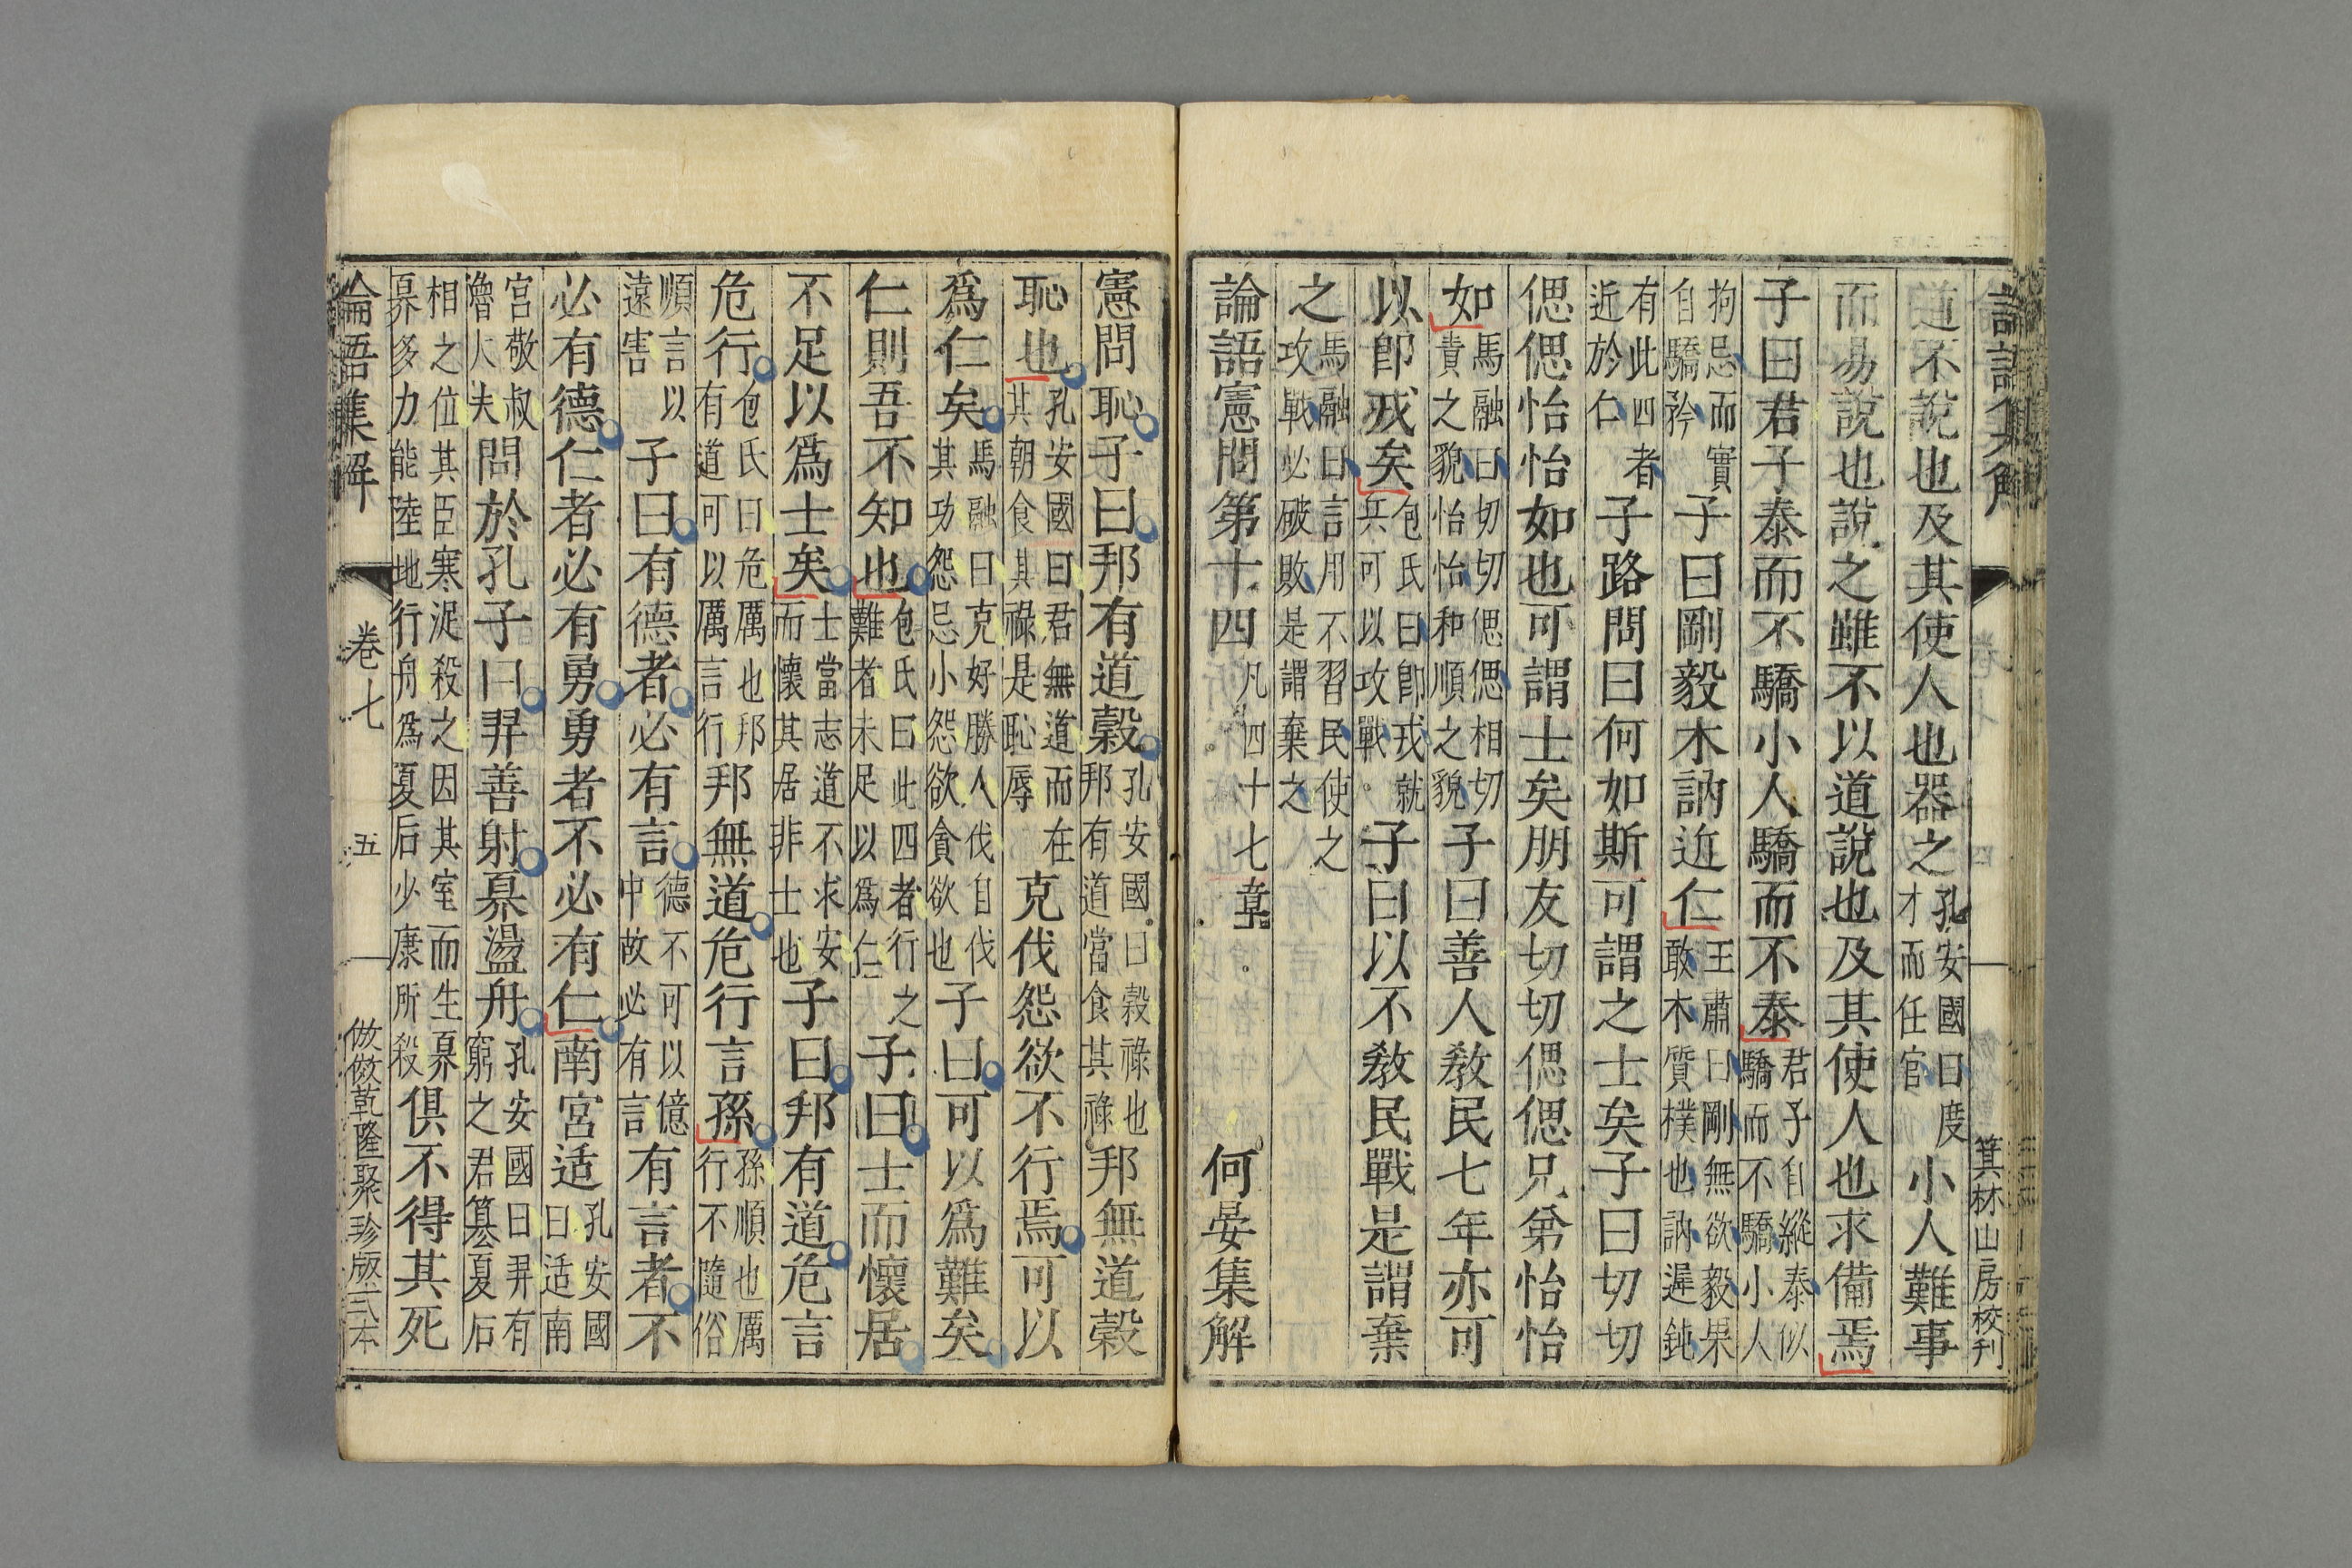 論語集解
箕林山房校刊
道不說也及其使人也器之孔安國曰度才而任官小人難事
而易說也說之雖不以道說也及其使人也求備焉
子曰君子泰而不驕小人驕而不泰君子自縱泰似驕而不驕小人
拘忌而實自驕矜子曰剛毅木訥近仁王肅曰剛無欲毅果敢木質樸也訥遲鈍
有此四者近於仁子路問曰何如斯可謂之士矣子曰切切
偲偲怡怡如也可謂士矣朋友切切偲偲兄弟怡怡
如馬融曰切切偲偲相切責之貌怡怡和順之貌子曰善人敎民七年亦可
以卽戎矣包氏曰卽戎就兵可以攻戰子曰以不敎民戰是謂棄
之馬融曰言用不習民使之攻戰必破敗是謂棄之
論語憲問第十四凡四十七章 何晏集解
憲問恥子曰邦有道穀孔安國曰穀祿也邦有道當食其祿邦無道穀
恥也孔安國曰君無道而在其朝食其祿是恥辱克伐怨欲不行焉可以
爲仁矣馬融曰克好勝人伐自伐其功怨忌小怨欲貪欲也子曰可以爲難矣
仁則吾不知也包氏曰此四者行之難者未足以爲仁子曰士而懷居
不足以爲士矣士當志道不求安而懷其居非士也子曰邦有道危言
危行包氏曰危厲也邦有道可以厲言行邦無道危行言孫孫順也厲行不隨俗
順言以遠害子曰有德者必有言德不可以億中故必有言有言者不
必有德仁者必有勇勇者不必有仁南宮适孔安國曰适南
宮敬叔魯大夫問於孔子曰羿善射奡盪舟孔安國曰羿有窮之君篡夏后
相之位其臣寒浞殺之因其室而生奡奡多力能陸地行舟爲夏后少康所殺俱不得其死
論語集解 卷七 五 倣乾隆聚珍版式本